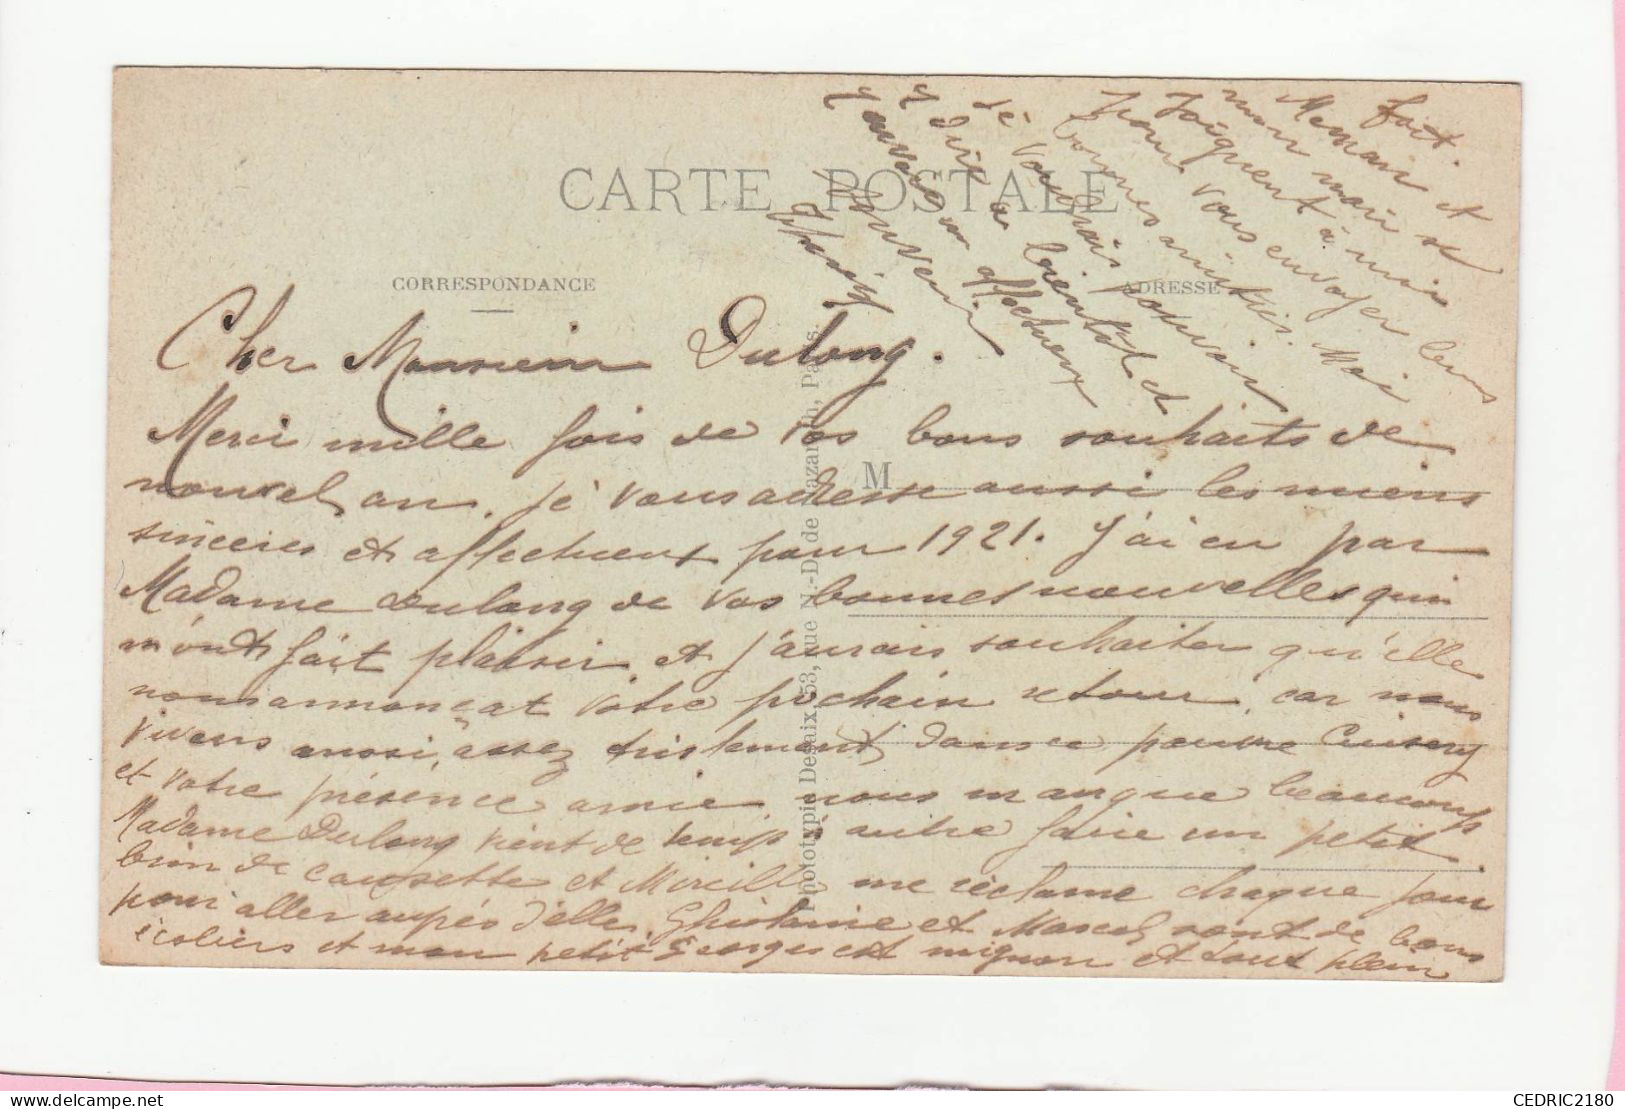 CARTE POSTALE
CORRESPONDANCE
ADRESSE
Cher Monsieur Dulong.
Merci mille fois de vos bons souhaits de
nouvel an. Je vous adresse aussi les miens
sincères et affectueux pour 1921. J'ai eu par
Madame Dulong de vos bonnes nouvelles qui
m'ont fait plaisir et j'aurais souhaiter qu'elle
nous annonçat votre prochain retour, car nous
vivons aussi, assez tristement dans ce pauvre Cuisery
et votre présence amie nous manque beaucoup
Madame Dulong vient de temps à autre faire un petit
brin de causette et Mireille me réclame chaque jour
pour aller auprès d'elle. Ghislaine et Marcel sont de bons
écoliers et mon petit Georges est mignon et tout plein
fait.
Maman et
mon mari se
joignent à moi
pour vous envoyer leurs
bonnes amitiés. Moi
je voudrais pouvoir
y dire à bientôt et
j'envoie un affectueux
souvenir
M
Phototypie Desaix, 53, rue N.-D. de Nazareth, Paris.
CEDRIC2180